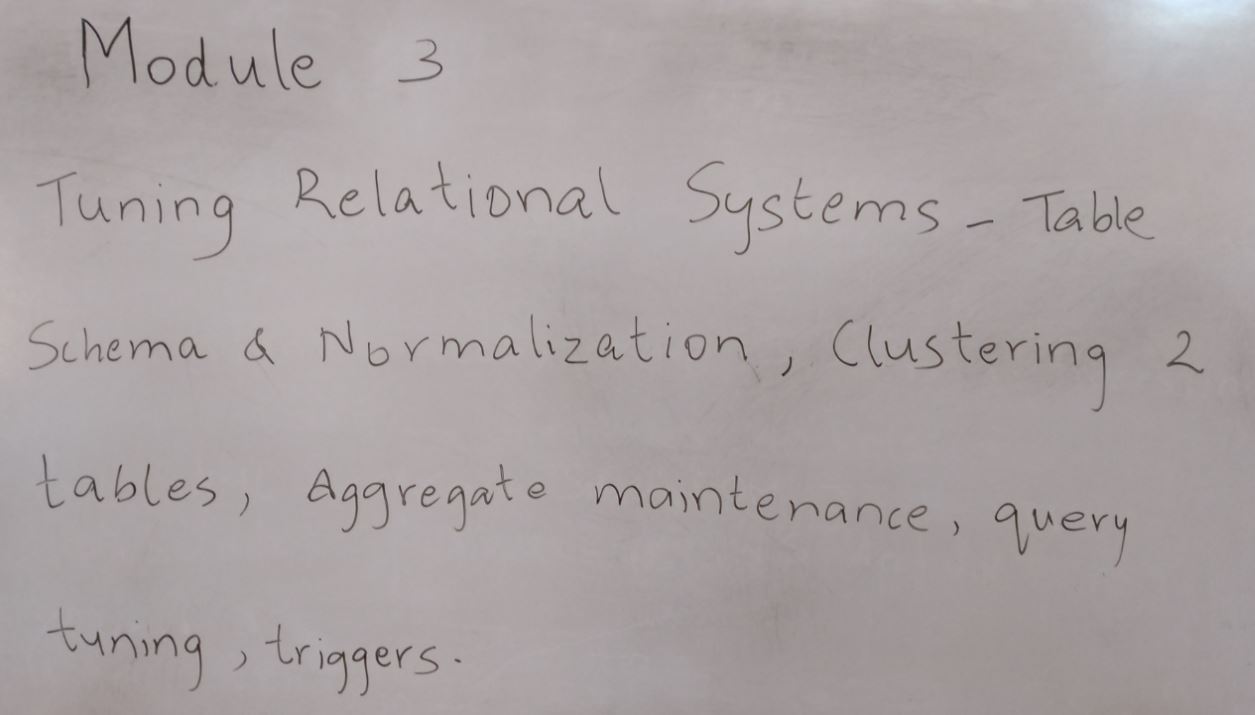 Module 3
Tuning Relational Systems - Table
Schema & Normalization, Clustering 2
tables, Aggregate maintenance, query
tuning, triggers.